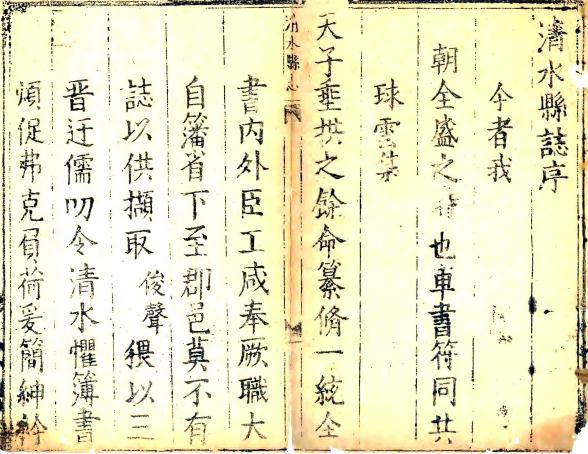 清水縣誌序
今者我
朝全盛之也車書符同共
球雲集
天子垂拱之餘命纂脩一統全
清水縣志
書內外臣工咸奉厥職大
自籓省下至郡邑莫不有
誌以供擷取俊聲猥以三
晋迂儒叨令清水懼簿書
煩促弗克負荷爰簡紳衿